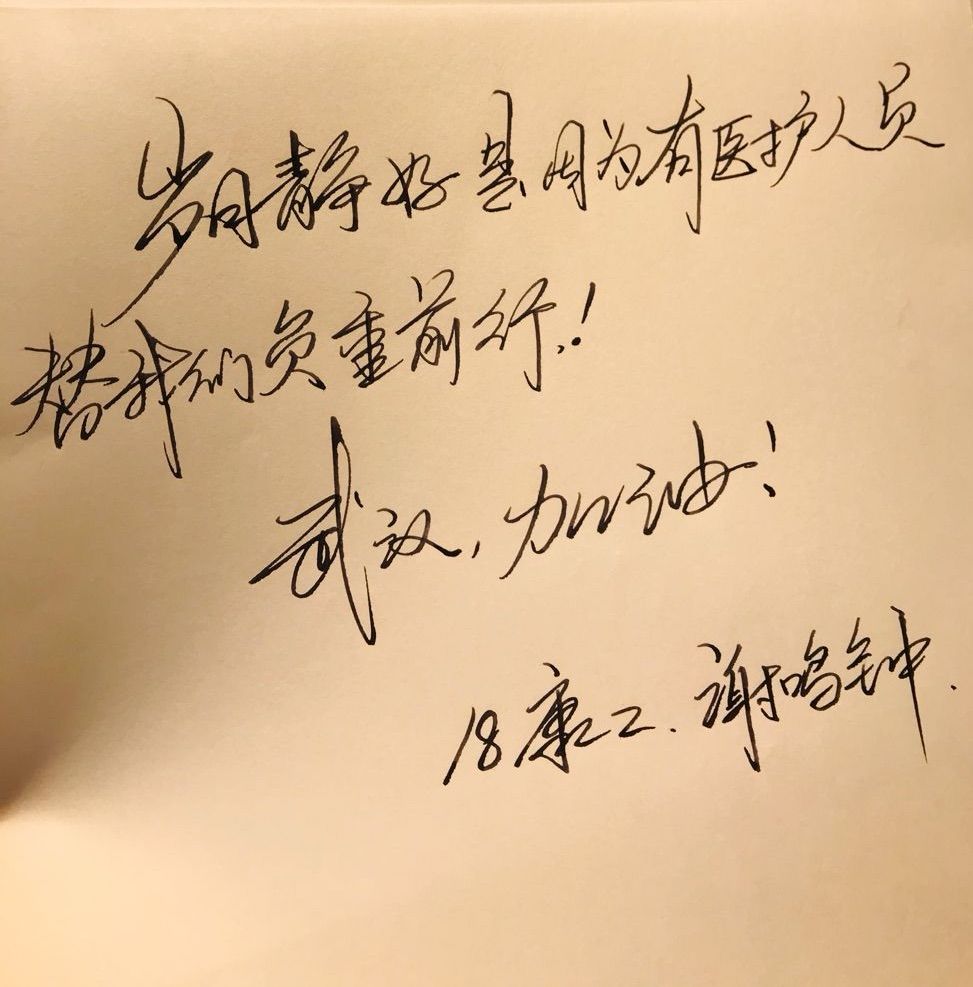 岁月静好是因为有医护人员
替我们负重前行.!
武汉,加油!
18康工.谢鸣钟.